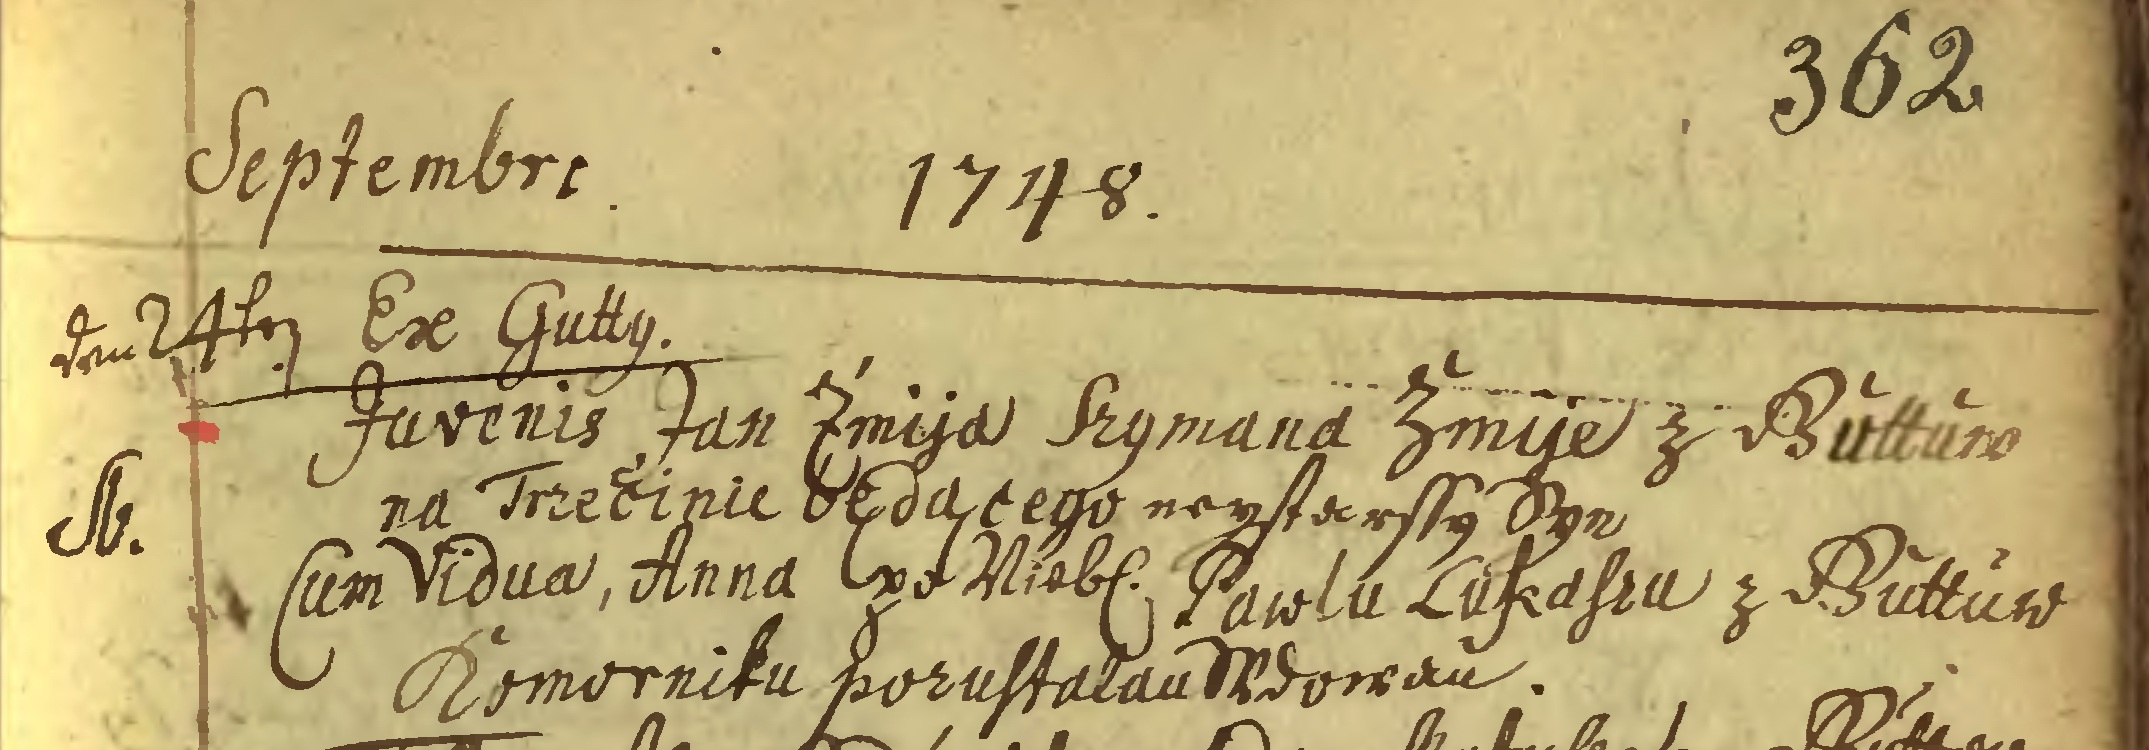 362
Septembre. 1748.
den 24ten Ex Gutty.
Juvenis Jan Żmija Szymana Žmije z Buttuw
na Trzećinie będącego neystarssy Syn
St.
Cum Vidua, Anna po Niebℓ. Pawlu Lukaszu z Buttuw
Komorniku pozustalau Wdowau.